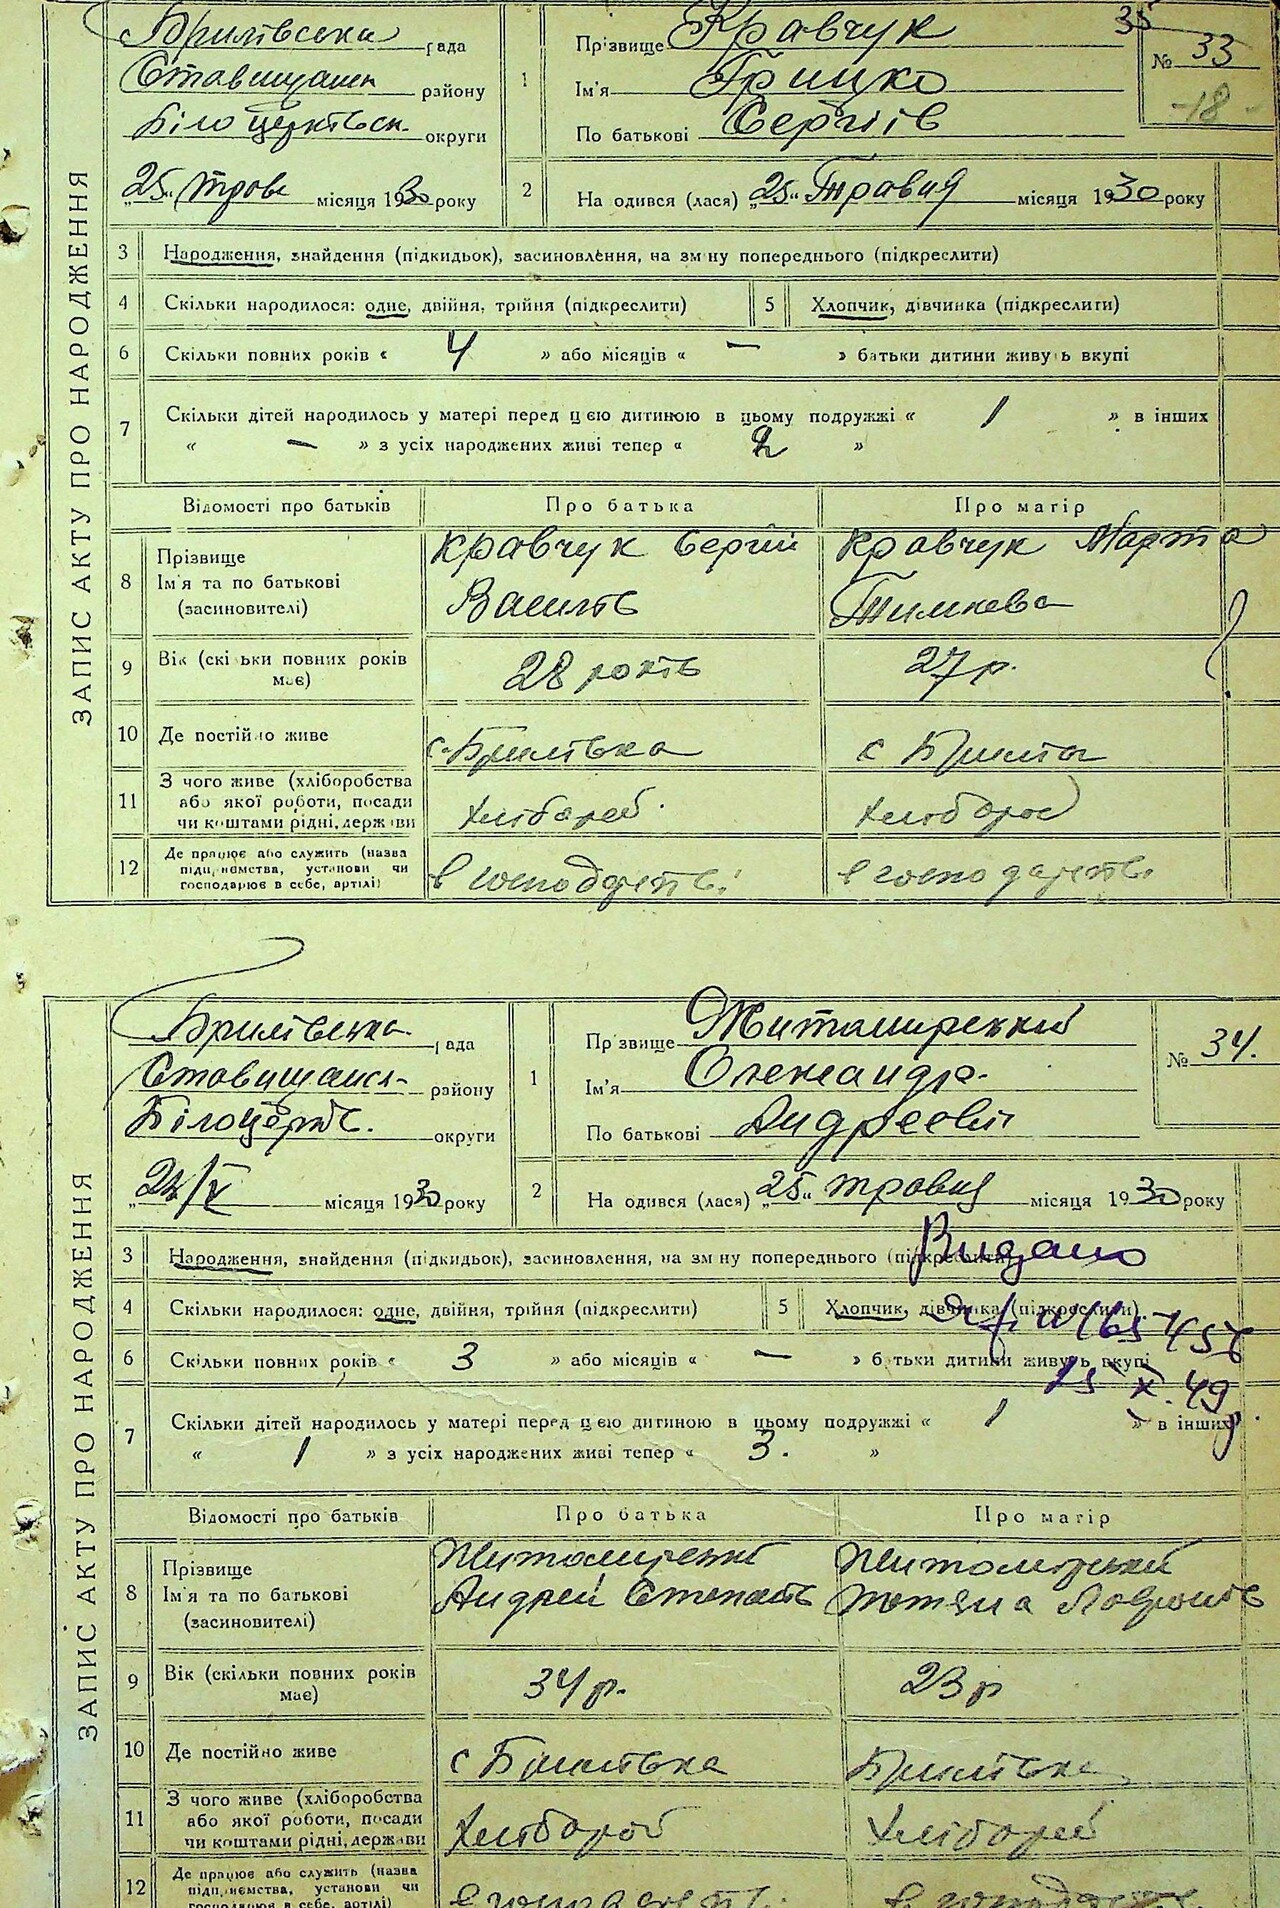 ЗАПИС АКТУ ПРО НАРОДЖЕННЯ
Брилівська рада
Ставищанськ району
Білоцерківськ. округи
„25“ трав місяця 1930 року
1
Прізвище Кравчук
Ім'я Грицко
По батькові Сергіїв
35
№ 33
-18-
2 На одився (лася) „25“ Травня місяця 1930 року
3 Народження, знайдення (підкидьок), засиновлення, на зм ну попереднього (підкреслити)
4 Скільки народилося: одне, двійня, трійня (підкреслити) 5 Хлопчик, дівчинка (підкреслити)
6 Скільки повних років « 4 » або місяців « — » батьки дитини живуть вкупі
7 Скільки дітей народилось у матері перед цією дитиною в цьому подружжі « 1 » в інших
« — » з усіх народжених живі тепер « 2 »
Відомості про батьків Про батька Про матір
8 Прізвище
Ім'я та по батькові
(засиновителі)
Кравчук Сергій
Василів
Кравчук Марта
Тимкова
9 Вік (скільки повних років має) 28 років 27 р.
10 Де постійно живе с. Брилівка с Брилів
11 З чого живе (хліборобства
або якої роботи, посади
чи коштами рідні, держави
Хлібороб Хлібороб
12 Де працює або служить (назва
підприємства, установи чи
господарює в себе, артілі)
в господарстві в господарстві
ЗАПИС АКТУ ПРО НАРОДЖЕННЯ
Брилівська рада
Ставищанськ району
Білоцерків. округи
„24/V місяця 1930 року
1
Пр звище Житомирський
Ім'я Олександр
По батькові Андреевич
№ 34.
2 На одився (лася) „25“ травня місяця 1930 року
3 Народження, знайдення (підкидьок), засиновлення, на зм ну попереднього (підкреслити)
Видано
4 Скільки народилося: одне, двійня, трійня (підкреслити) 5 Хлопчик, дівчинка (підкреслити)
6 Скільки повних років « 3 » або місяців « — » батьки дитини живуть вкупі
15 X. 49
7 Скільки дітей народилось у матері перед цією дитиною в цьому подружжі « 1 » в інших
« 1 » з усіх народжених живі тепер « 3. »
Відомості про батьків Про батька Про матір
8 Прізвище
Ім'я та по батькові
(засиновителі)
Житомирський
Андрей Степанів
Житомирський
Тетяна
9 Вік (скільки повних років має) 34 р. 23 р
10 Де постійно живе с Брилівка Брилівка
11 З чого живе (хліборобства
або якої роботи, посади
чи коштами рідні, держави
Хлібороб Хлібороб
12 Де працює або служить (назва
підприємства, установи чи
господарює в себе, артілі)
в господарстві в господарстві